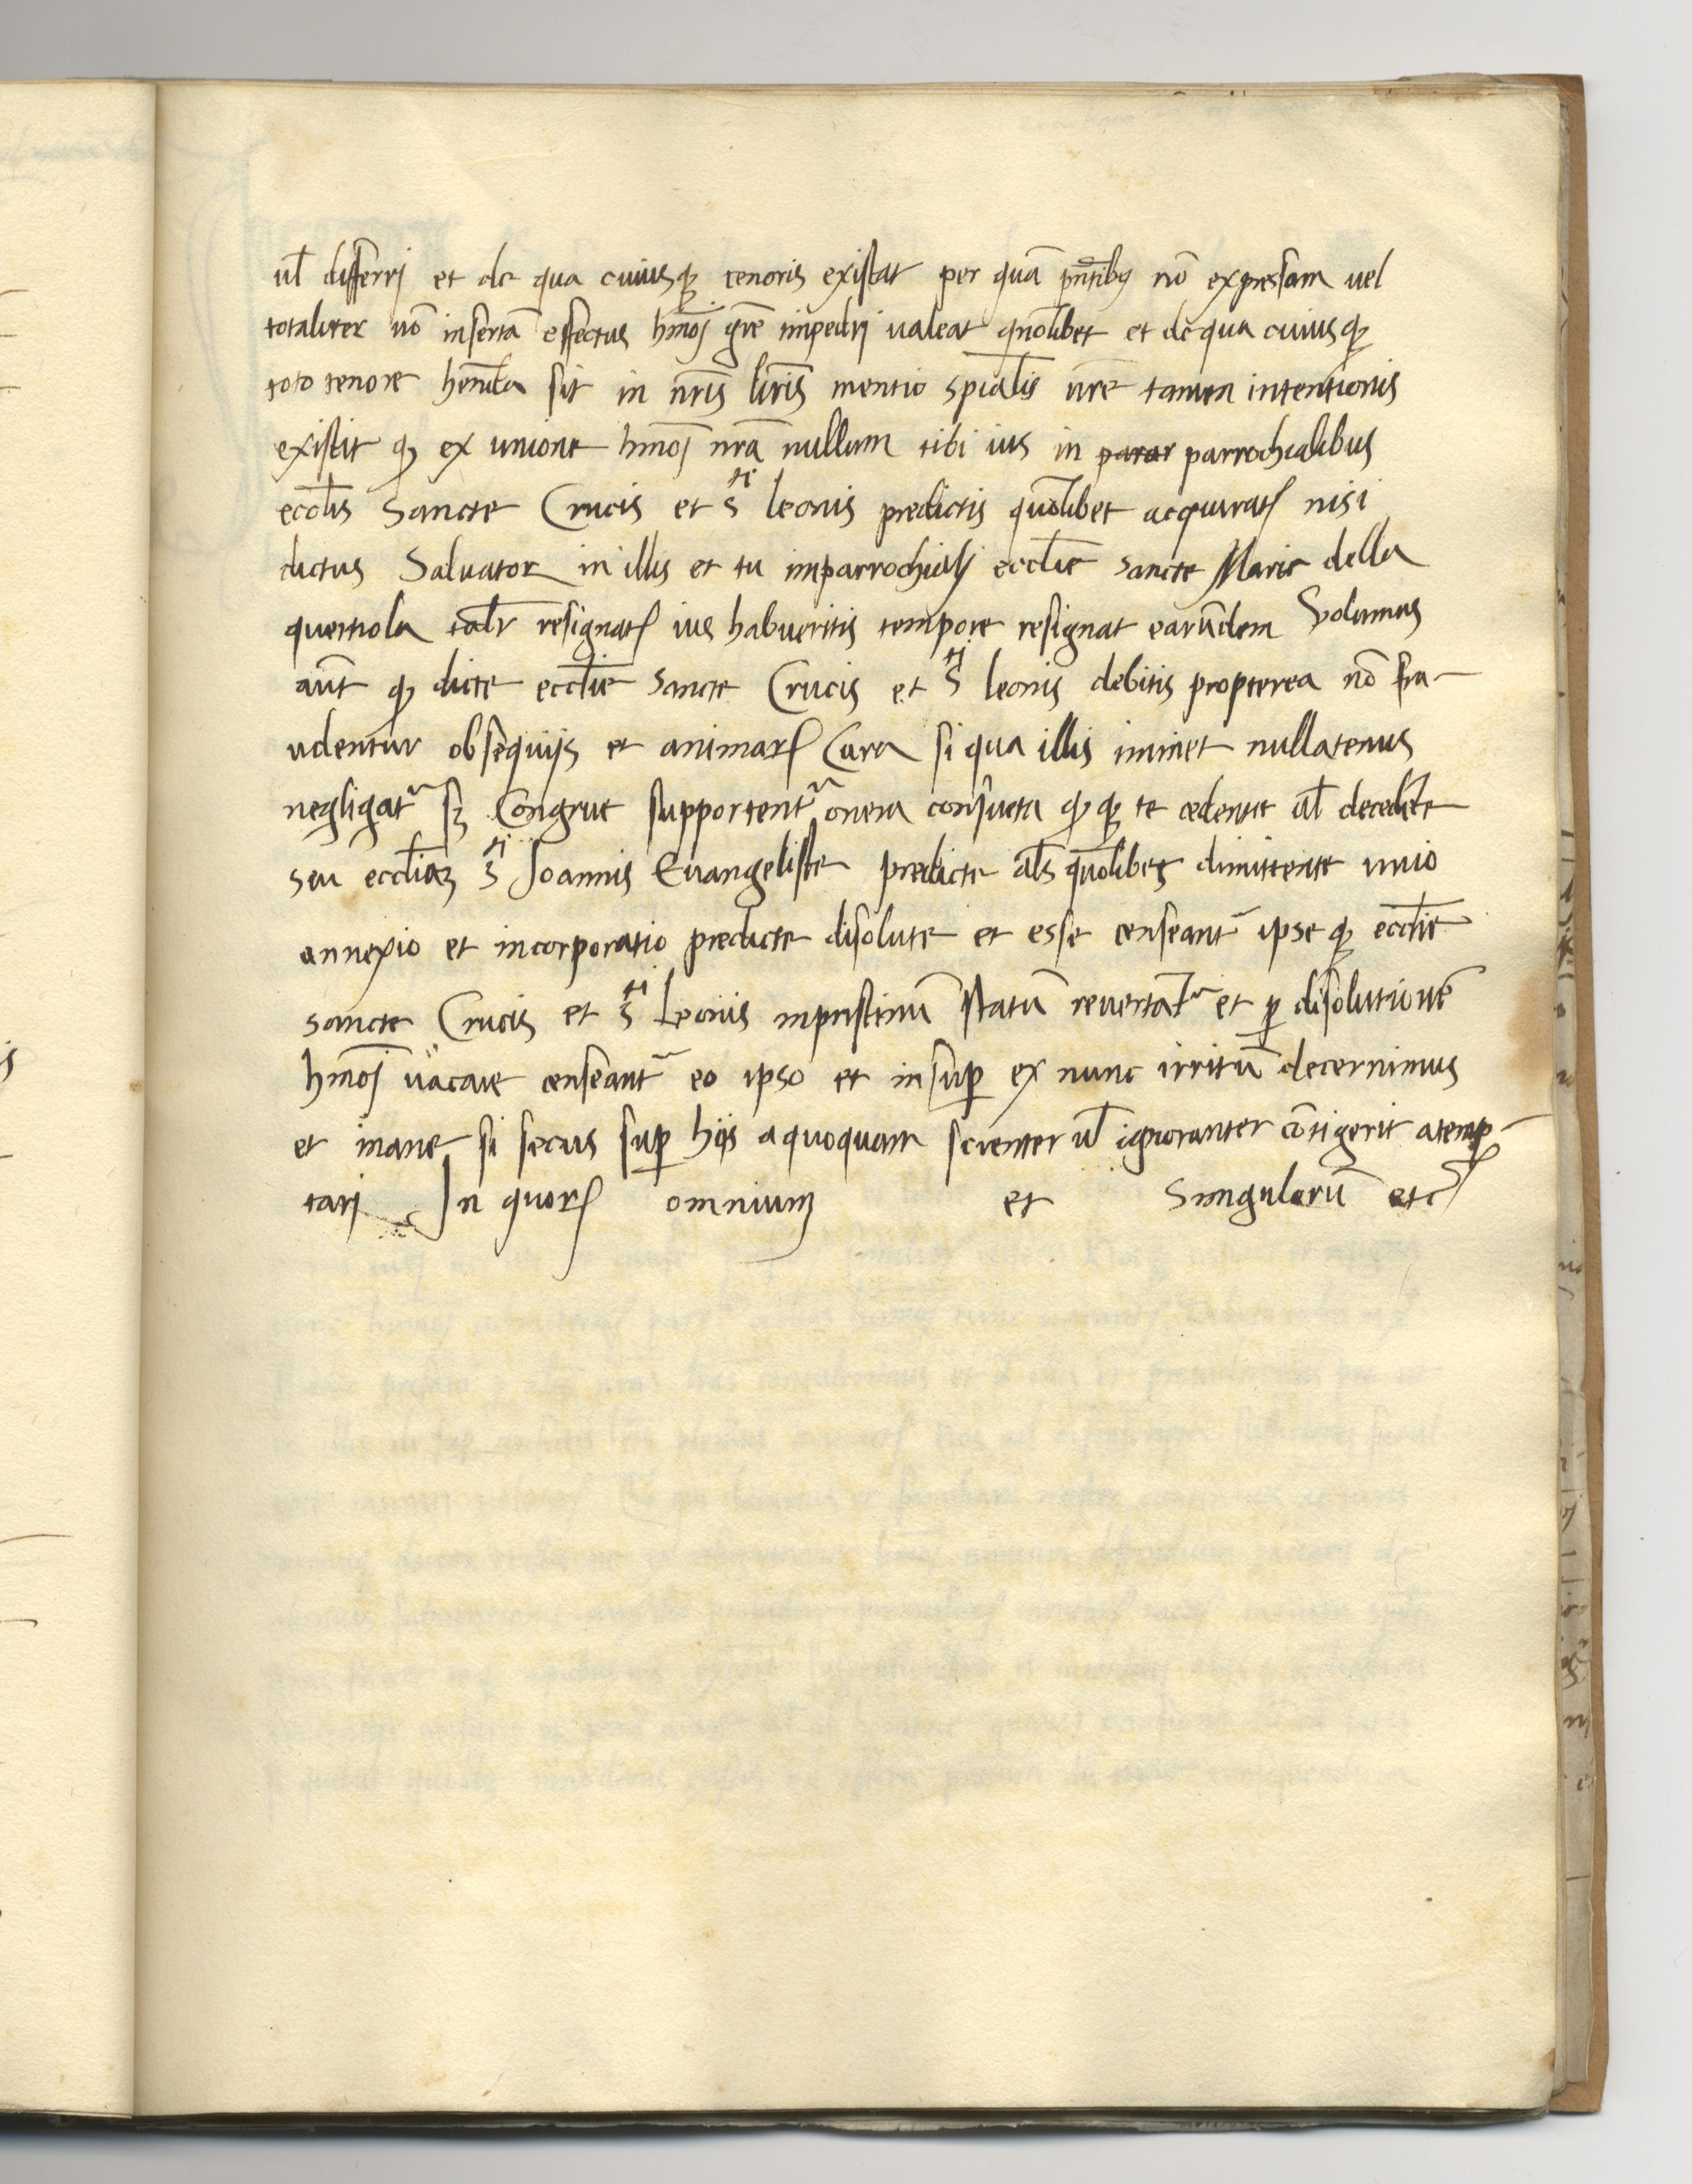 ul̄ differrj et de qua cuiusqȝ tenoris existat per quā pn̄tibꝯ nō expressam uel
totaliter nō insertā effectus hmōj grē impedirj ualeat quōlibet et de qua cuiusqȝ
toto tenore hen̄da sit in nr̄is lr̄is mentio spīalis nr̄e tamen intentionis
existit qȝ ex unione hmōj nrā nullum tibi ius in parar parrochialibus
eccl̄is Sancte Crucis et Sti leonis predictis quōlibet acquiratꝛ nisi
dictus Saluator in illis et tu inparrochialj eccl̄ie sancte Marie della
querciola talr̄ resignatꝛ ius habueritis tempore resignat earūdem Volumus
aūt qȝ dicte eccl̄ie Sancte Crucis et Stj leonis debitis propterea nō fra-
udentur obsequijs et animarꝝ Cura si qua illis iminet nullatenus
negligatr sȝ Congrue supportentr onera consueta qȝqȝ te cedente ul̄ decedēte
seu eccl̄iaȝ Stj Joannis Euangeliste predicte als̄ quōlibet dimittente unio
annexio et incorporatio predicte disolute et esse censeantr ipseqȝ eccl̄ie
sancte Crucis et Sti Leonis inpristinū statū reuertātr et ꝑ disolutionē
hmōj uacare censeantr eo ipso et insuꝑ ex nunc irritū decernimus
et inane si secus suꝑ hijs aquoquam scienter ul̄ ignoranter cōtigerit atemp-
tarj In quorꝝ omnium et Singulorū etc